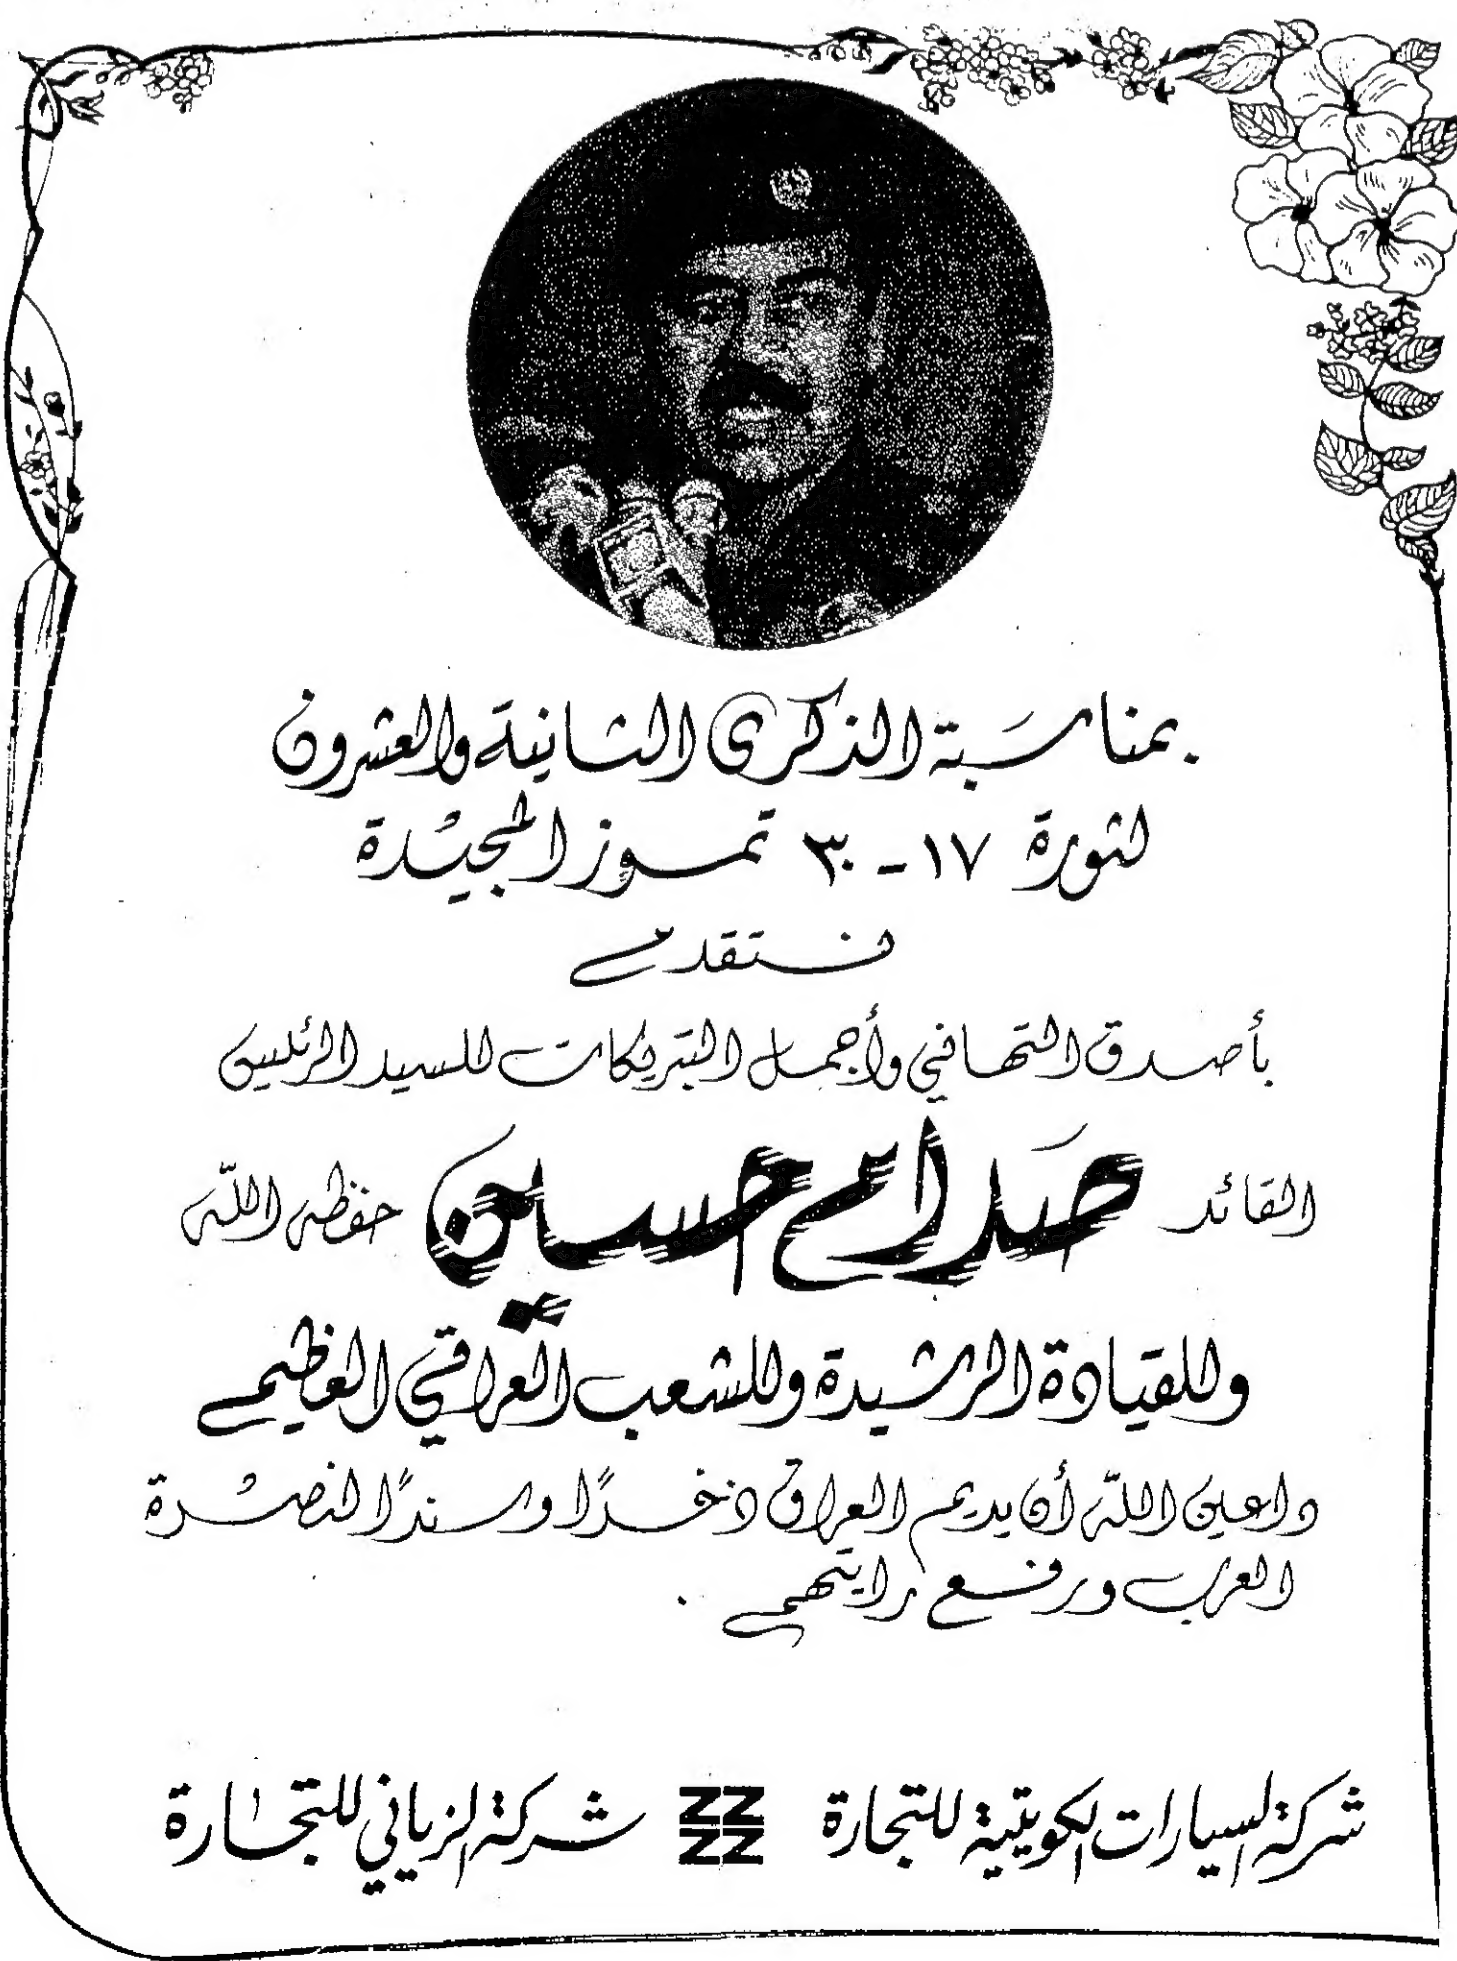 بمناسبة الذكرى الثانية والعشرون
لثورة ١٧ - ٣٠ تموز المجيدة
نتقدم
بأصدق التهاني وأجمل التبريكات للسيد الرئيس
القائد صدام حسين حفظه الله
وللقيادة الرشيدة وللشعب العراقي العظيم
داعين الله أن يديم العراق ذخرًا وسندًا لنصرة
العرب ورفع رايتهم .
شركة السيارات الكويتية للتجارة ZZ ZZ شركة الزياني للتجارة